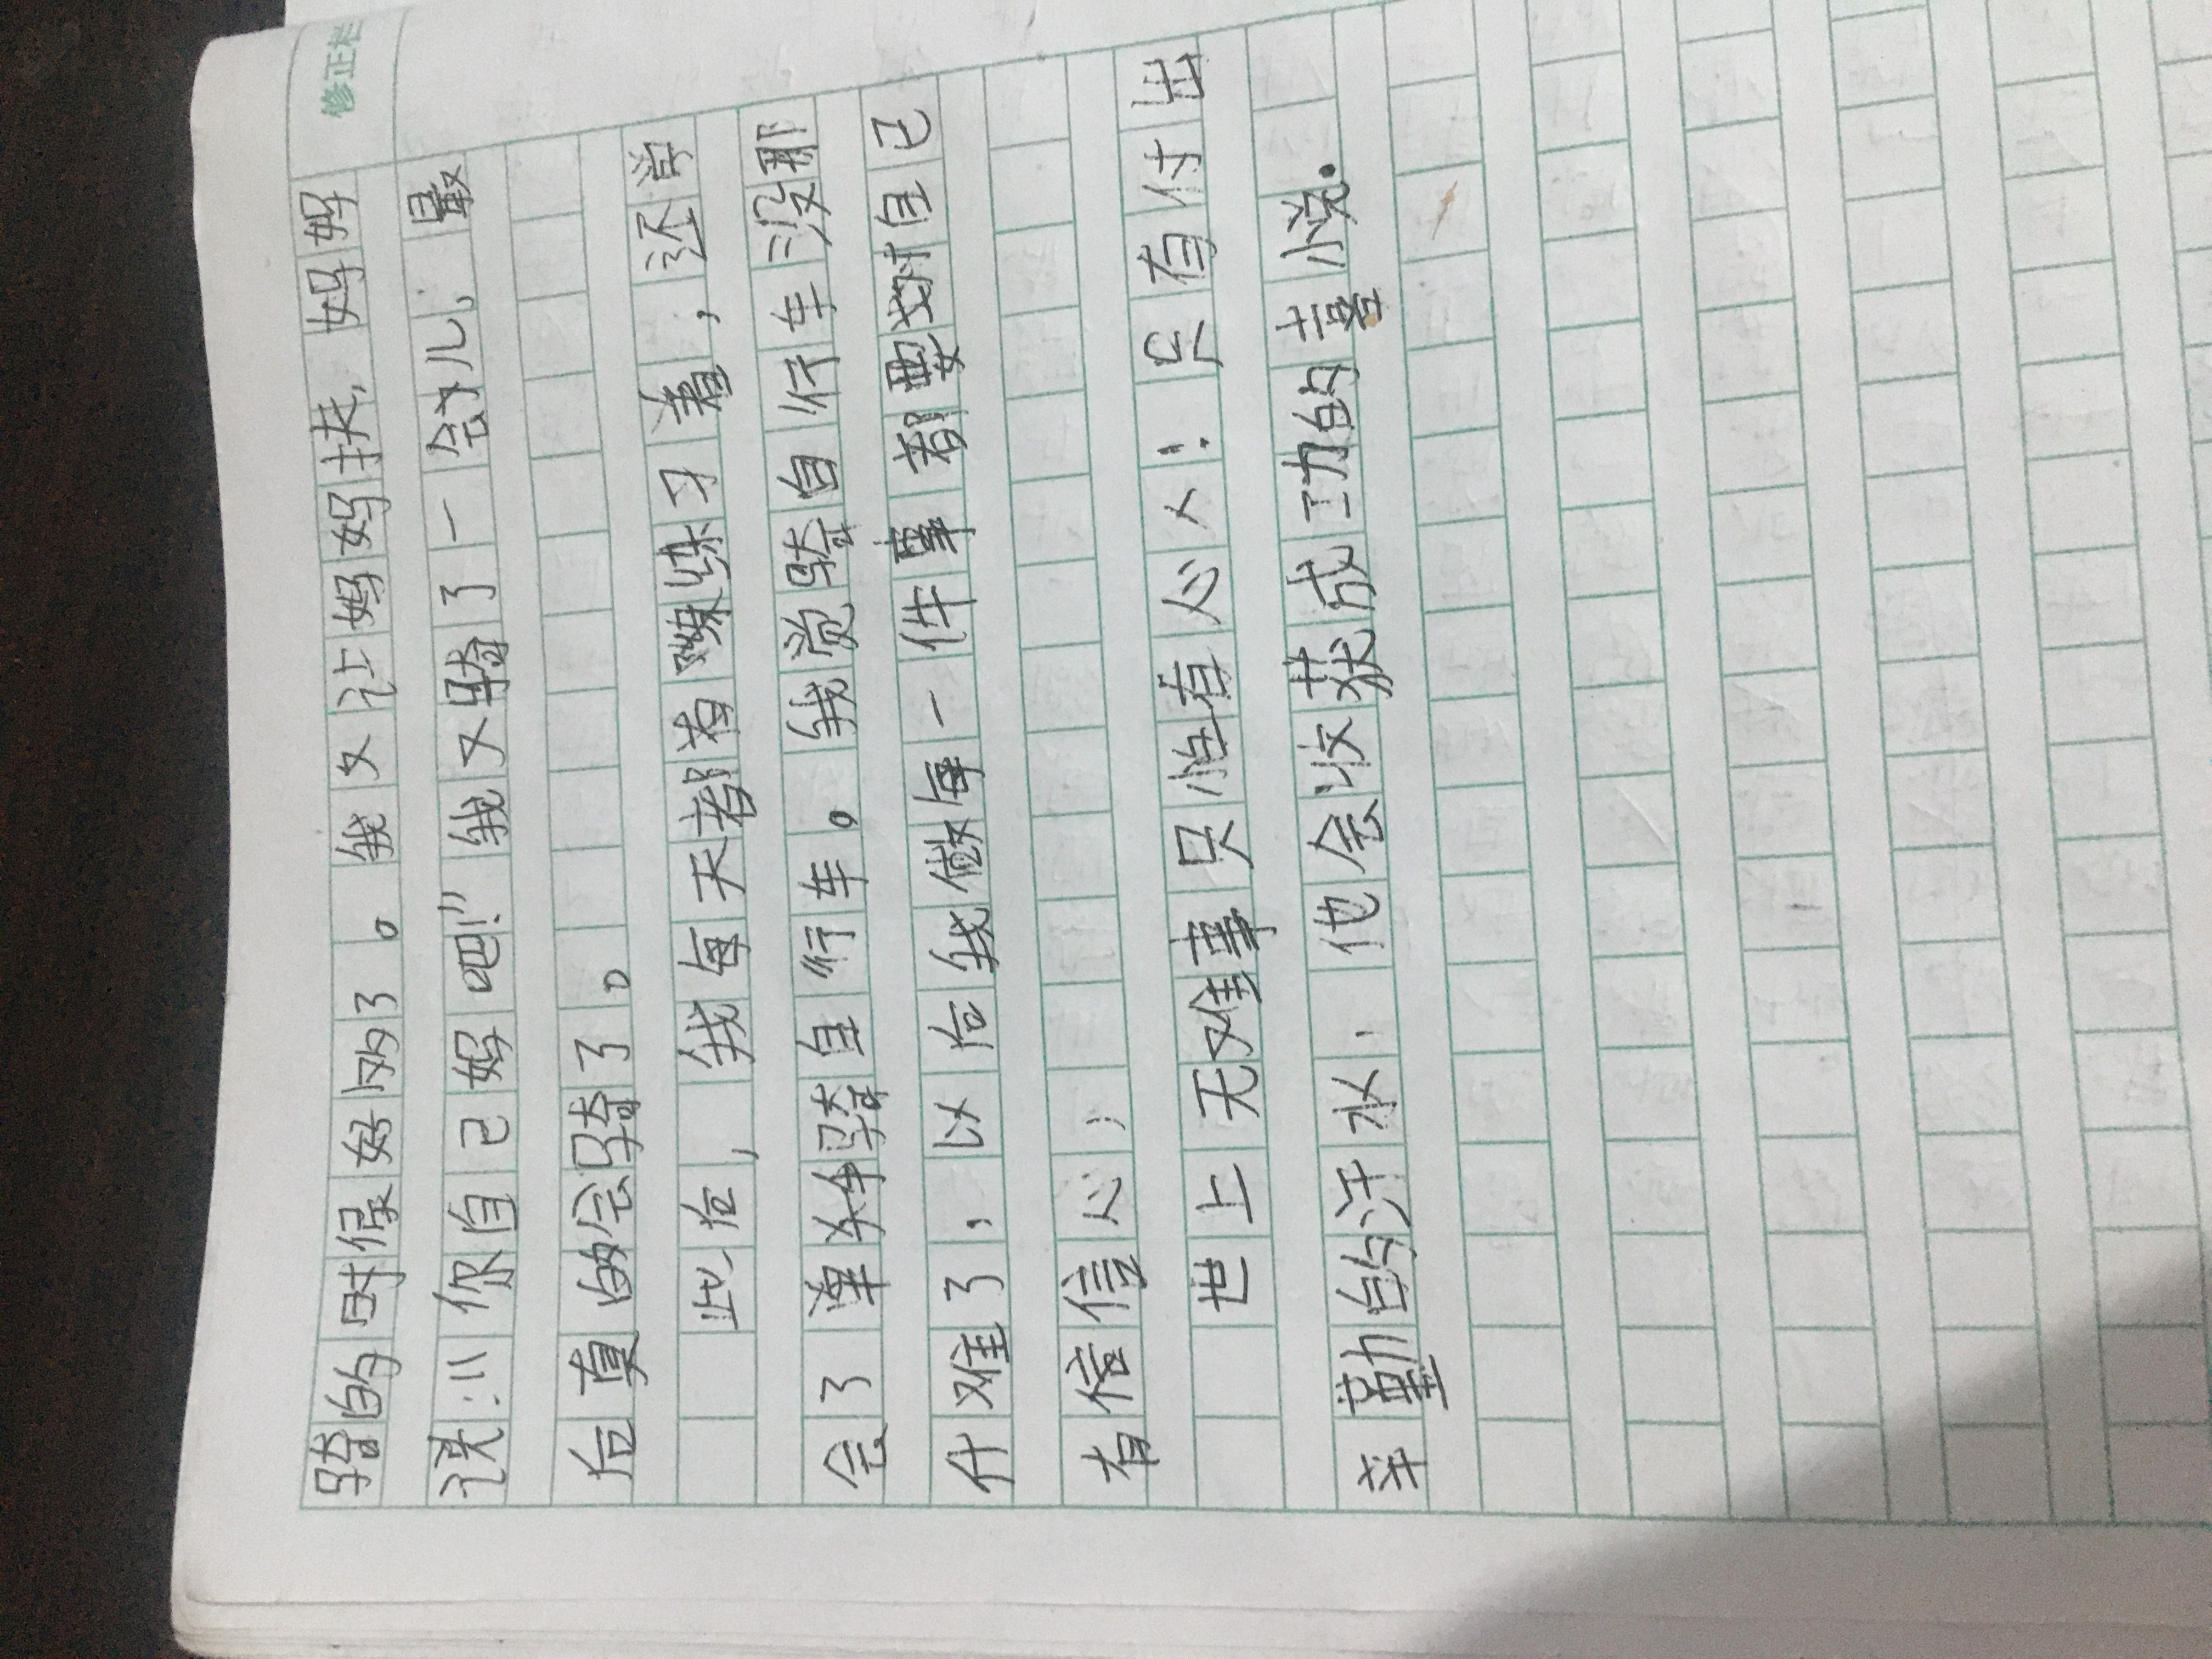 修正栏
骑的时候好多了。我又让妈妈扶，妈妈
说：“你自己好吧！”我又骑了一会儿，最
后真的会骑了。
此后，我每天都着练习着，还学
会了单手骑自行车。我觉骑自行车没那
什难了，以后我做每一件事都要对自己
有信信心；
世上无难事只怕有心人：只有付出
辛勤的汗水，他会收获成功的喜悦.